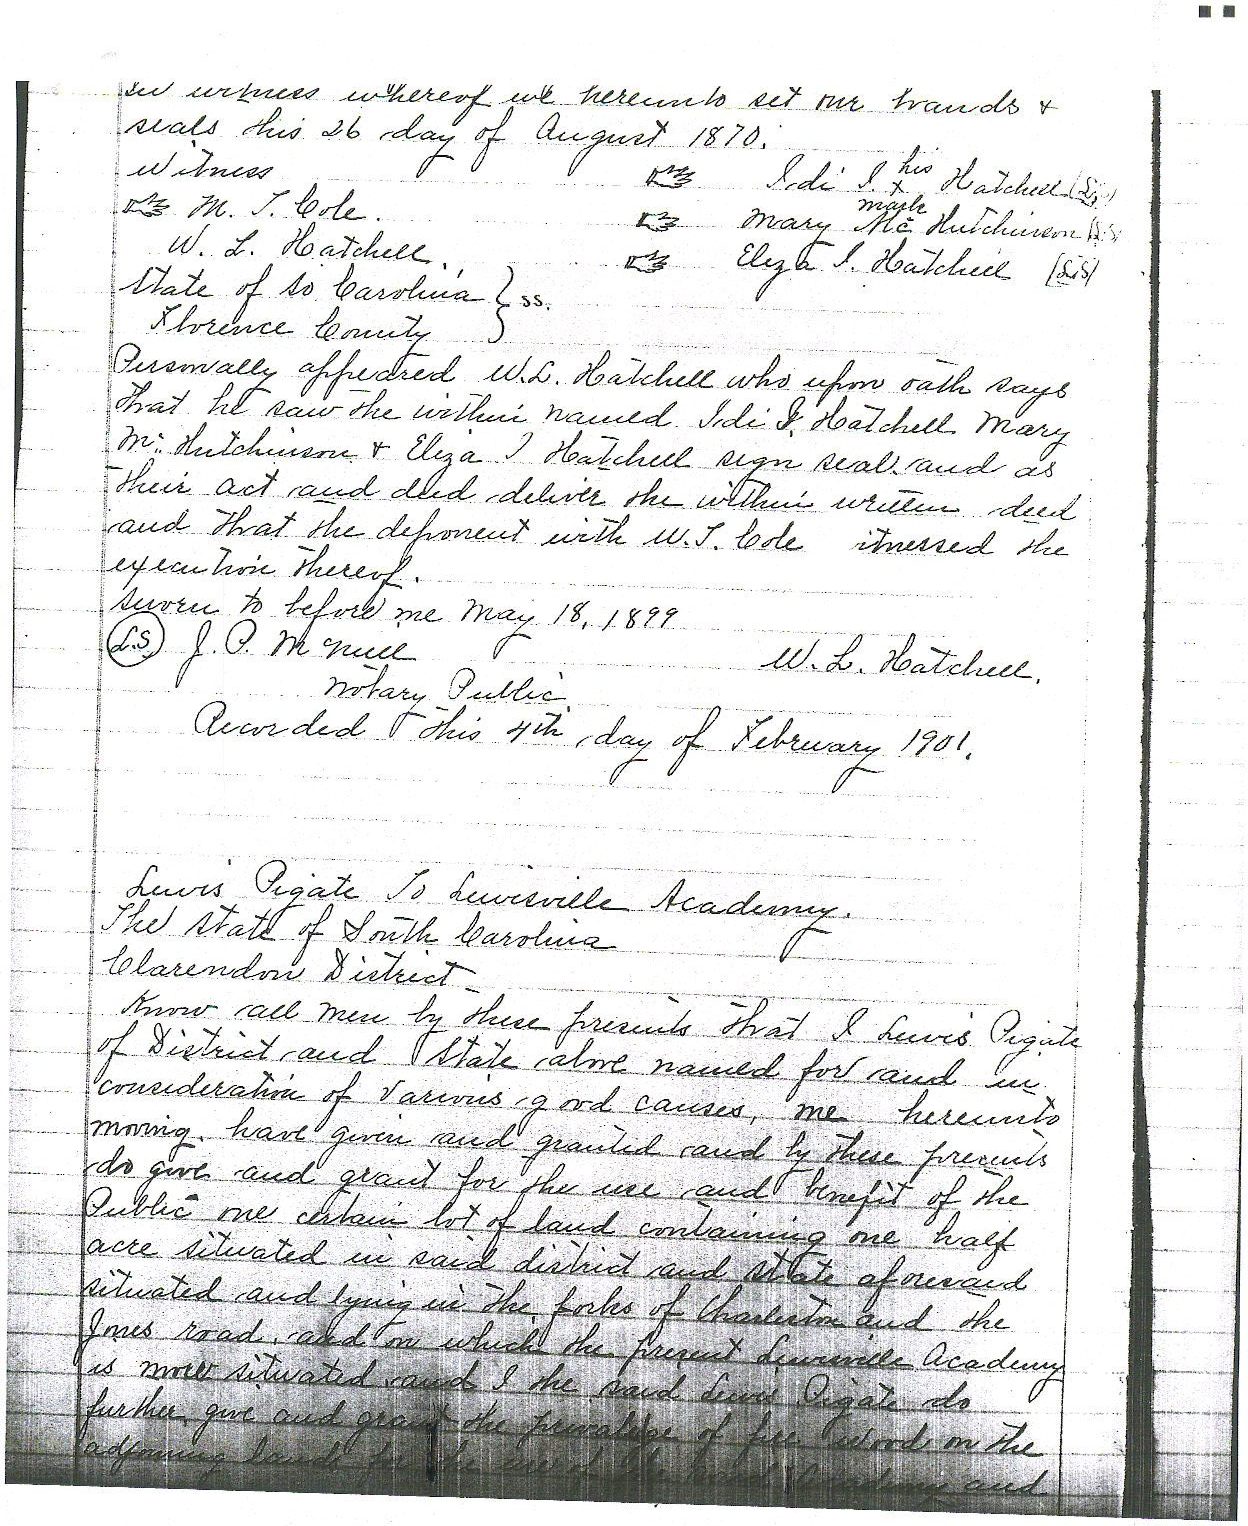 In witness whereof we hereunto set our hands &
seals this 26 day of August 1870.
Witness
Idi I. his x mark Hatchell (L.S)
M. T. Cole.
Mary Mc Hutchinson (L.S
W. L. Hatchell.
Eliza I. Hatchell (L.S)
State of So Carolina } ss.
Florence County
Personally appeared W.L. Hatchell who upon oath says
that he saw the within named Idi I. Hatchell Mary
Mc Hutchinson & Eliza I Hatchell sign seal and as
their act and deed deliver the within written deed
and that the deponent with W.T. Cole itnessed the
execution thereof.
Sworn to before me May 18, 1899
L.S. J. P. McNeill
W. L. Hatchell.
Notary Public.
Recorded this 4th day of February 1901.
Lewis Pigate To Lewisville Academy.
The State of South Carolina
Clarendon District
Know all men by these presents that I Lewis Pigate
of District and State above named for and in
consideration of various good causes, me hereunto
moving. have given and granted and by these presents
do give and grant for the use and benefit of the
Public one certain lot of land containing one half
acre situated in said district and state aforesaid
situated and lying in the forks of Charleston and the
Jones road. and on which the present Lewisville Academy
is now situated and I the said Lewis Pigate do
further give and grant the privalege of fire wood on the
adjoining lands for the use of the said Academy and